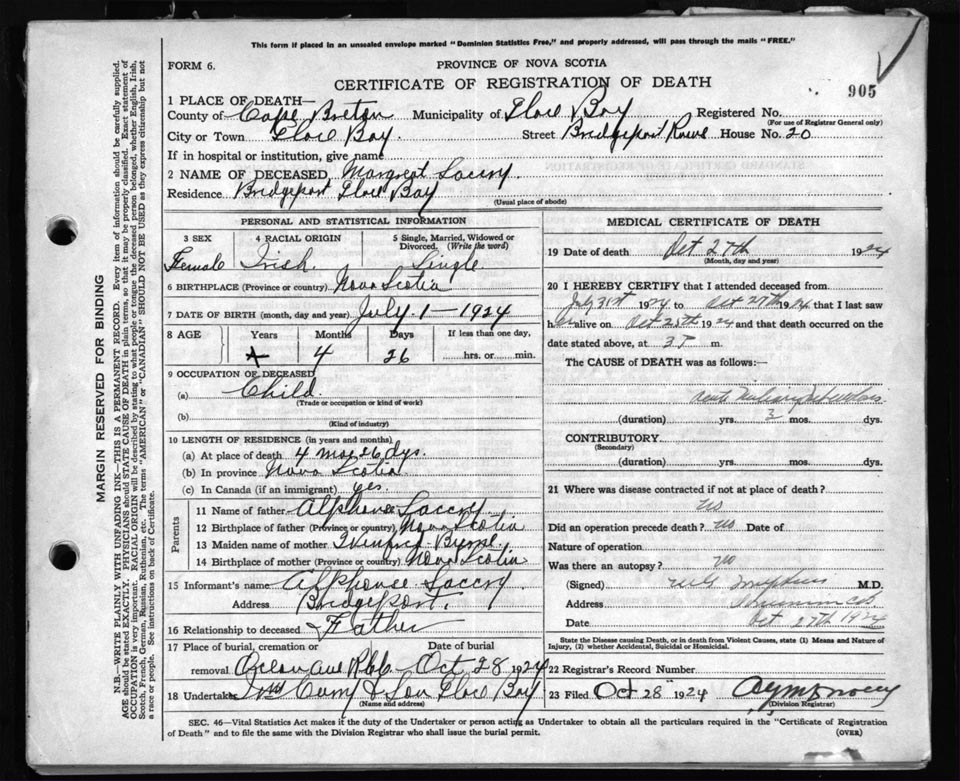 This form if placed in an unsealed envelope marked "Dominion Statistics Free," and properly addressed, will pass through the mails "FREE."
FORM 6.
PROVINCE OF NOVA SCOTIA
CERTIFICATE OF REGISTRATION OF DEATH
905
1 PLACE OF DEATH—
County of Cape Breton Municipality of Glace Bay Registered No.
(For use of Registrar General only)
City or Town Glace Bay. Street Bridgeport Rowe House No. 20
If in hospital or institution, give name
2 NAME OF DECEASED, Margret
Residence Bridgeport Glace Bay
(Usual place of abode)
PERSONAL AND STATISTICAL INFORMATION
3 SEX 4 RACIAL ORIGIN 5 Single, Married, Widowed or Divorced. (Write the word)
Female Irish. Single
6 BIRTHPLACE (Province or country) Nova Scotia
7 DATE OF BIRTH (month, day and year) July-1-1924
8 AGE Years Months Days If less than one day,
4 26 hrs. or min.
9 OCCUPATION OF DECEASED
(a) Child
(Trade or occupation or kind of work)
(b)
(Kind of industry)
10 LENGTH OF RESIDENCE (in years and months)
(a) At place of death 4 mos 26 dys.
(b) In province Nova Scotia
(c) In Canada (if an immigrant) yes.
Parents
11 Name of father Alphonse
12 Birthplace of father (Province or country) Nova Scotia
13 Maiden name of mother Byrne
14 Birthplace of mother (Province or country) Nova Scotia
15 Informant's name Alphonse
Address Bridgeport.
16 Relationship to deceased Father
17 Place of burial, cremation or removal Date of burial
Ocean Ave Oct 28 1924
18 Undertaker & Son Glace Bay
(Name and address)
MEDICAL CERTIFICATE OF DEATH
19 Date of death Oct 27th 1924
(Month, day and year)
20 I HEREBY CERTIFY that I attended deceased from
July 31st 1924 to Oct 27th 1924 that I last saw
her alive on Oct 25th 1924 and that death occurred on
date stated above, at 3 P m.
The CAUSE of DEATH was as follows:—
Acute Miliary Tuberculosis
(duration) yrs. 3 mos. dys.
CONTRIBUTORY
(Secondary)
(duration) yrs. mos. dys.
21 Where was disease contracted if not at place of death?
no
Did an operation precede death? no Date of
Nature of operation
Was there an autopsy? no
(Signed) M.D.
Address
Date Oct 27th 1924
State the Disease causing Death, or in death from Violent Causes, state (1) Means and Nature of Injury, (2) whether Accidental, Suicidal or Homicidal.
22 Registrar's Record Number
23 Filed Oct 28 1924
(Division Registrar)
SEC. 46—Vital Statistics Act makes it the duty of the Undertaker or person acting as Undertaker to obtain all the particulars required in the "Certificate of Registration
of Death" and to file the same with the Division Registrar who shall issue the burial permit.
(OVER)
MARGIN RESERVED FOR BINDING
N.B.—WRITE PLAINLY WITH UNFADING INK—THIS IS A PERMANENT RECORD. Every item of information should be carefully supplied.
AGE should be stated EXACTLY. PHYSICIANS should STATE CAUSE OF DEATH in plain terms, so that it may be properly classified. Exact statement of
OCCUPATION is very important. RACIAL ORIGIN will be described by stating to what people or tongue the deceased person belonged, whether English, Irish,
Scotch, French, German, Russian, Ruthenian, etc. The terms "AMERICAN" or "CANADIAN" SHOULD NOT BE USED as they express citizenship but not
a race or people. See instructions on back of Certificate.